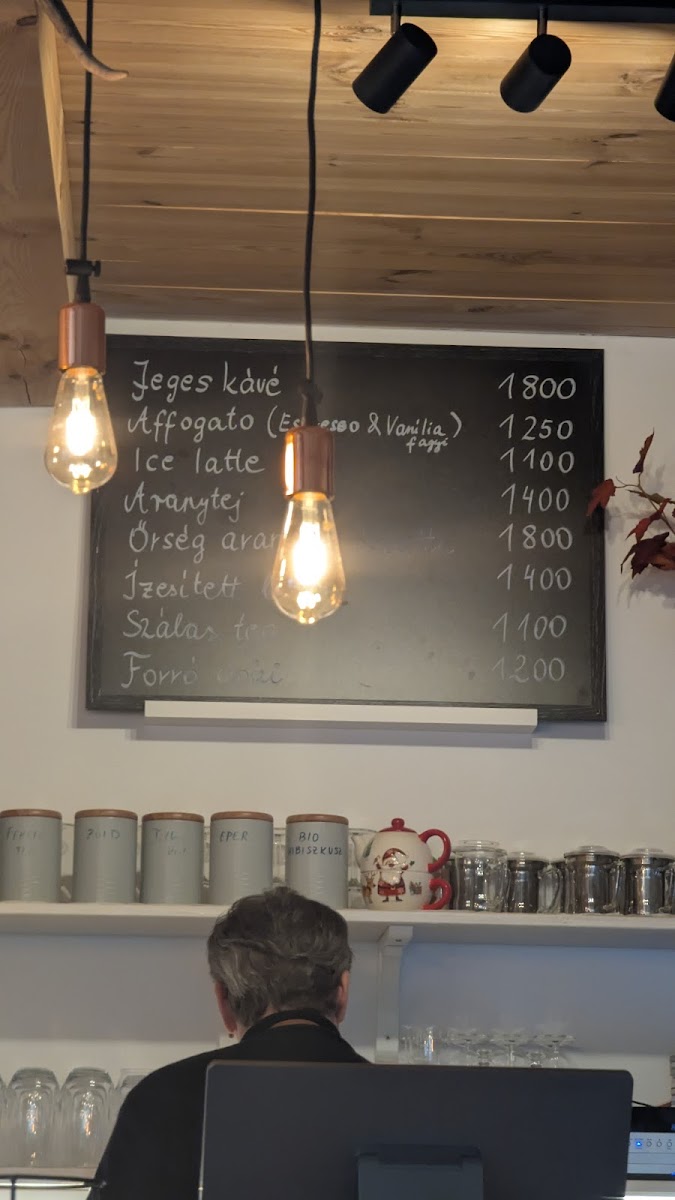 Jeges kávé 1800
Affogato (Espresso & Vanília fagyi) 1250
Ice latte 1100
Aranytej 1400
Őrség 1800
Ízesített 1400
Szálas tea 1100
Forró 1200
ZÖLD
EPER
BIO
HIBISZKUSZ